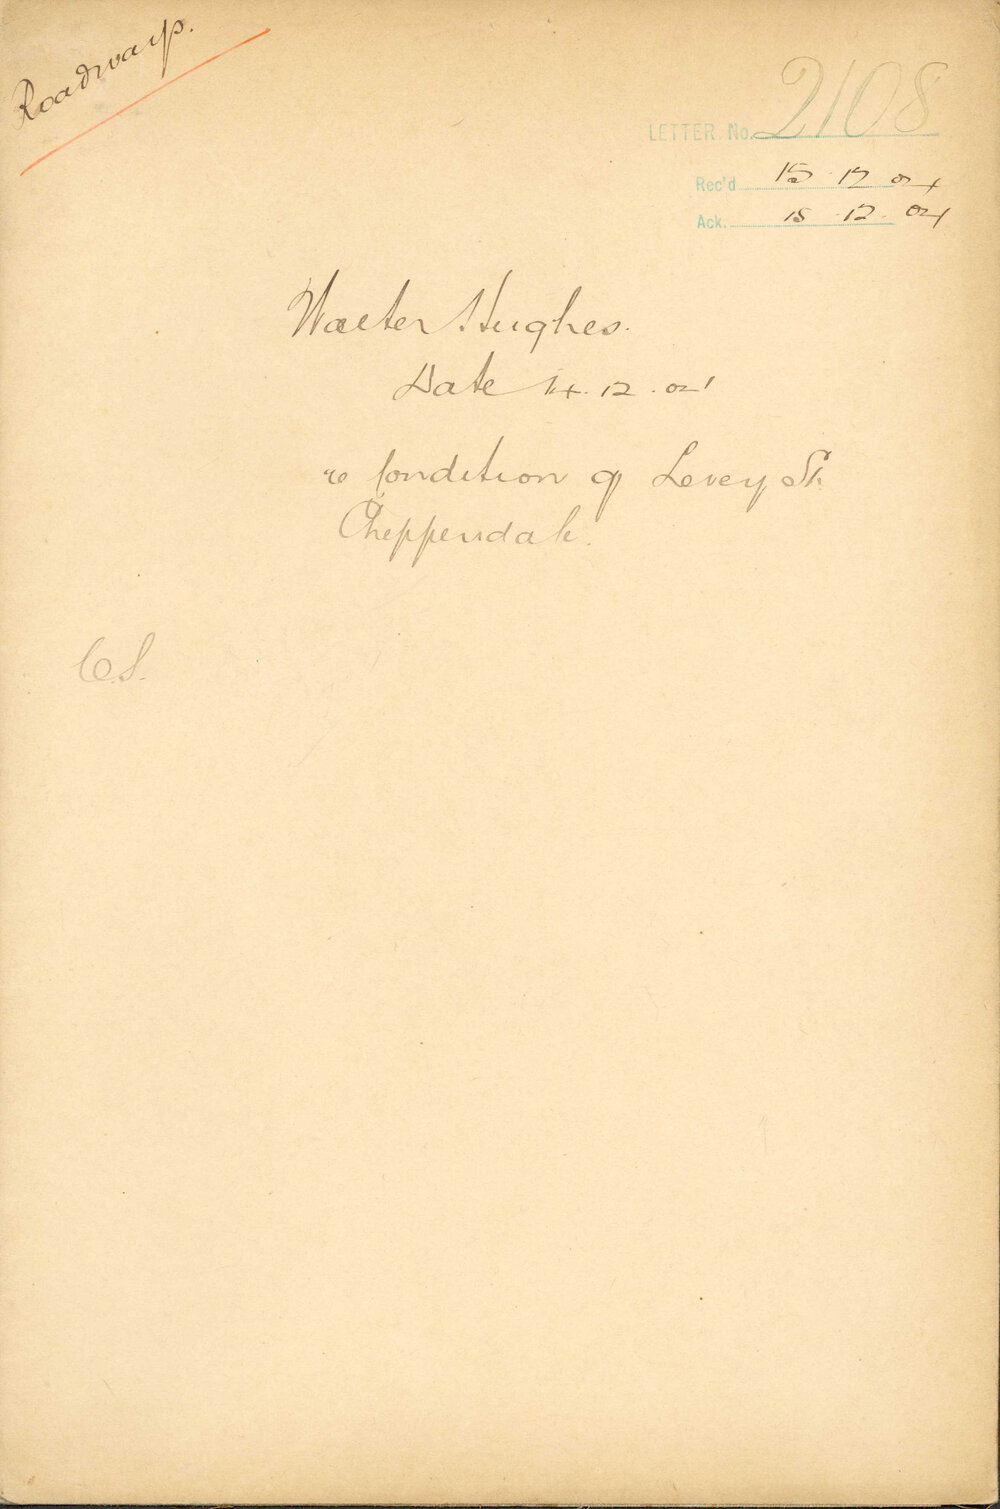 Roadways.
LETTER No. 2108
Rec'd 15.12.04
Ack. 15.12.04
Walter Hughes.
Date 14.12.04
re Condition of Levey St.
Chippendale.
C.S.